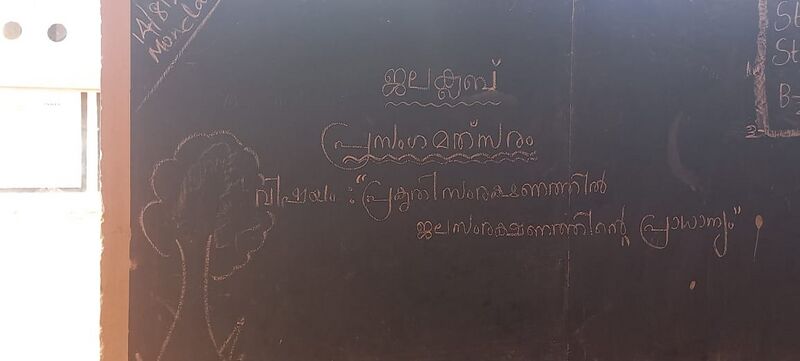 14/8/
Monday
ജലക്ലബ്
പ്രസംഗമത്സരം
വിഷയം : "പ്രകൃതി സംരക്ഷണത്തിൽ
ജലസംരക്ഷണത്തിന്റെ പ്രാധാന്യം"
St
St
B-